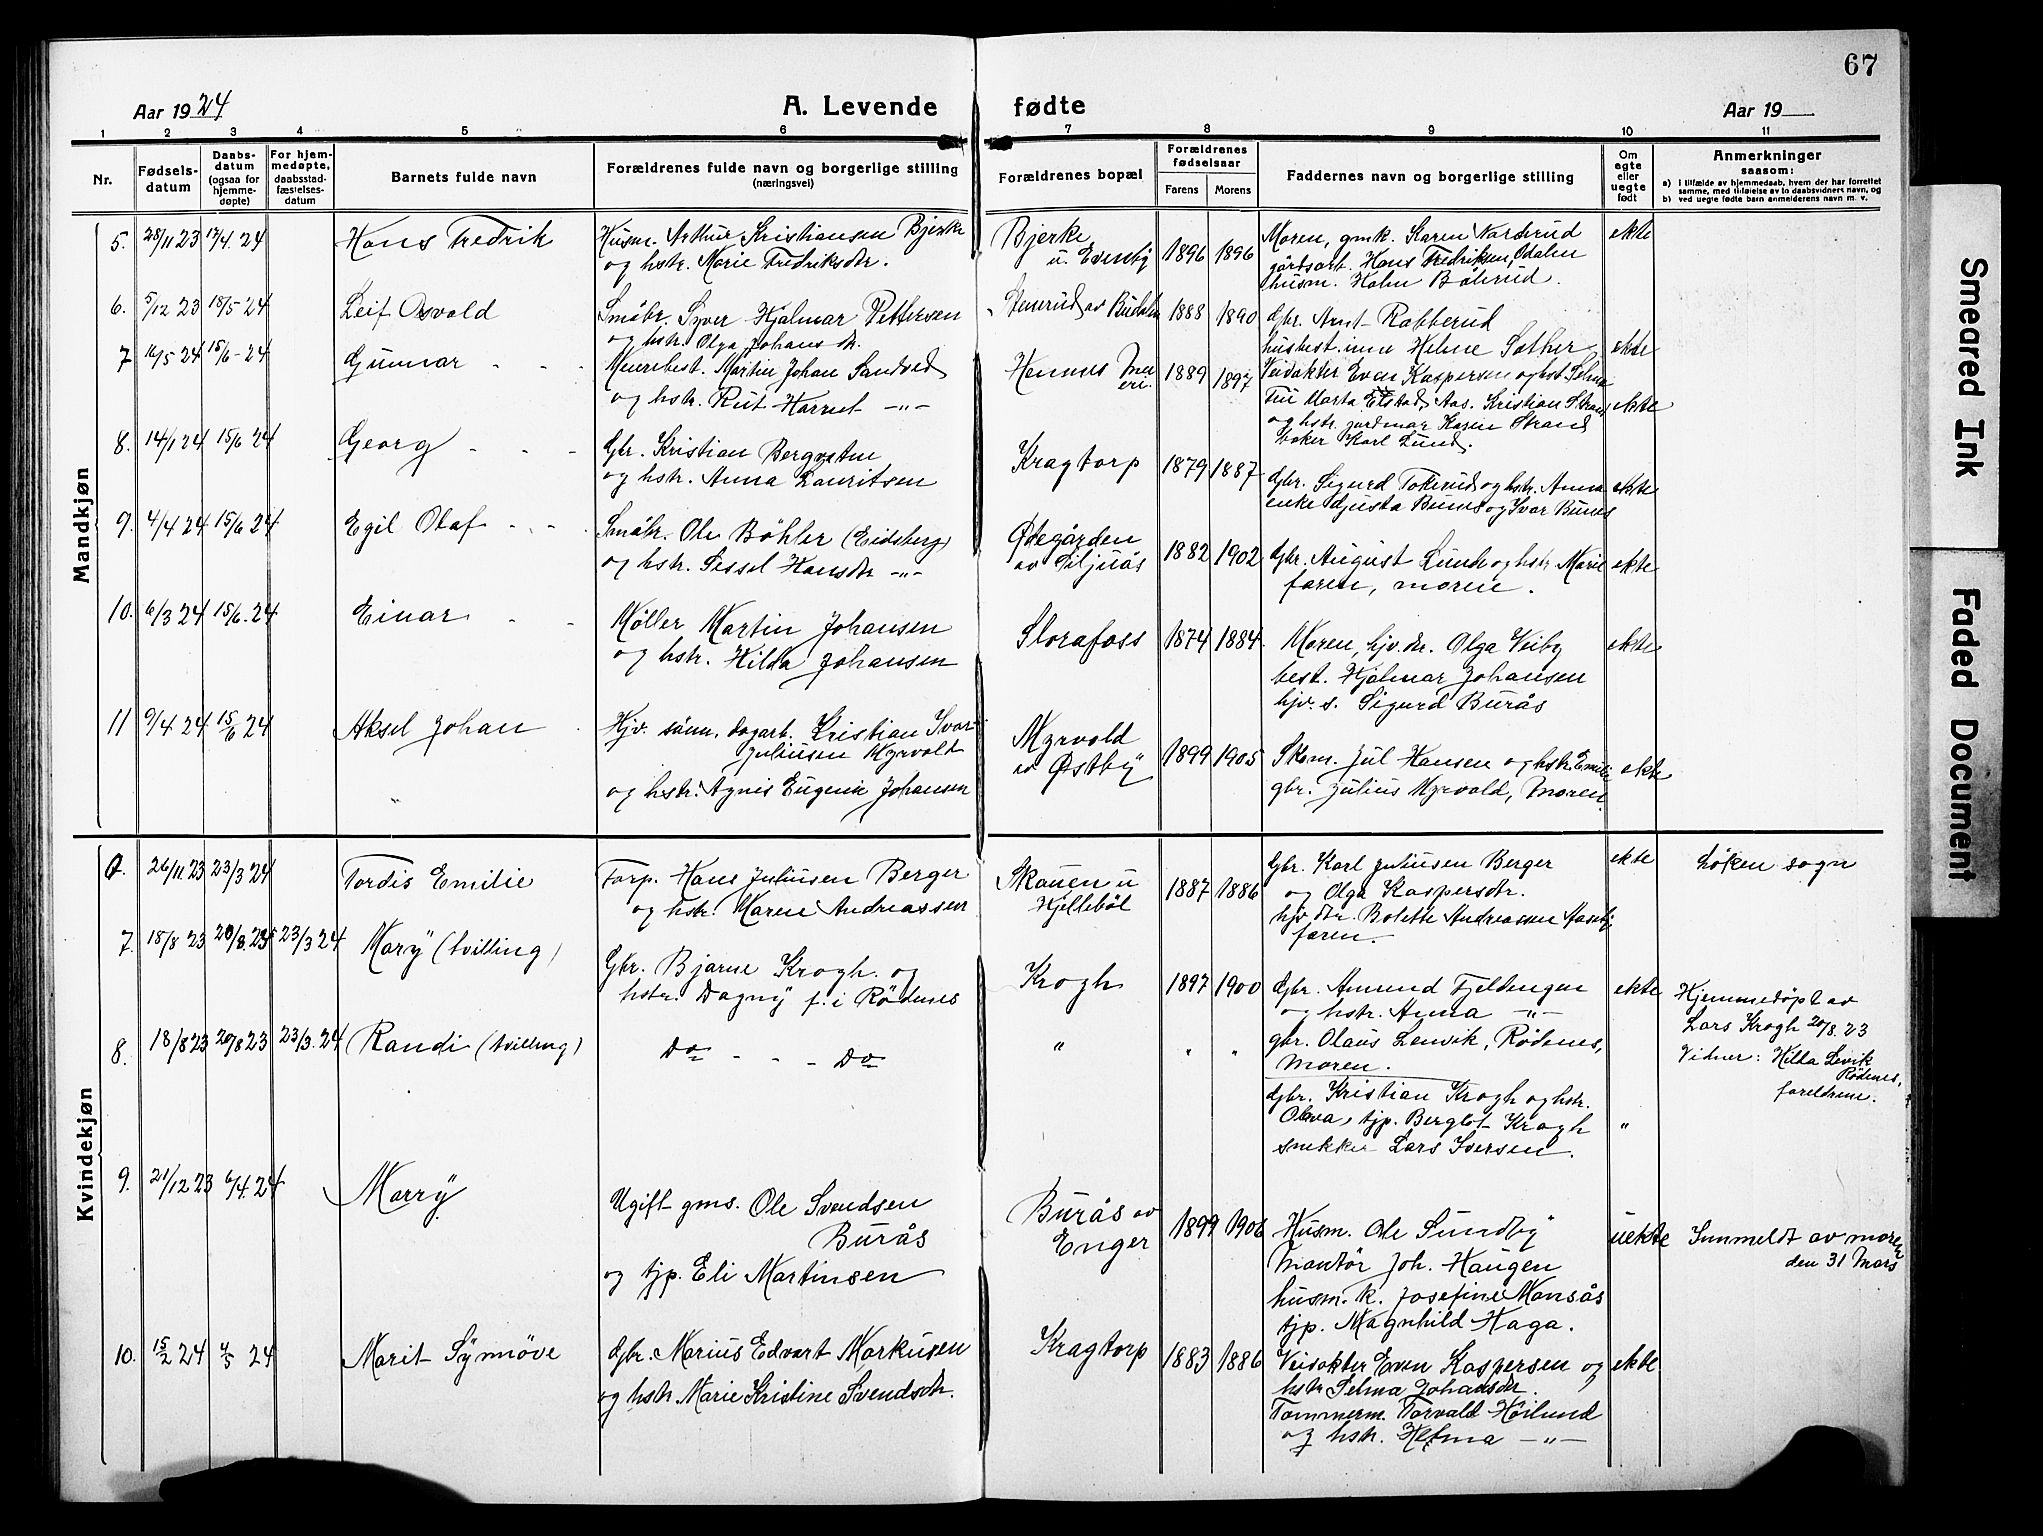 67
Aar 1924
A. Levende
fødte
Aar 19
1 2 3 4 5 6 7 8 9 10 11
Nr.
Fødsels-
datum
Daabs-
datum
(ogsaa for
hjemme-
døpte)
For hjem-
medøpte,
daabsstad-
fæstelses-
datum
Barnets fulde navn
Forældrenes fulde navn og borgerlige stilling
(næringsvei)
Forældrenes bopæl
Forældrenes
fødselsaar
Farens Morens
Faddernes navn og borgerlige stilling
Om
egte
eller
uegte
født
Anmerkninger
saasom:
a) i tilfælde av hjemmedaab, hvem der har forrettet
samme, med tilføielse av to daabsvidners navn, og
b) ved uegte fødte barn anmelderens navn m. v.
Mandkjøn
5. 28/11 23 17/4. 24 Hans Fredrik
Husm. Arthur Kristiansen Bjerke
og hstr. Marie Fredriksdtr.
Bjerke
u. Evenby
1896 1896
Moren, gmk. Karen Narterud
gårdsarb. Hans Fredriksen, Odalen
husm. Holm Bølerud.
ekte
6. 5/12 23 18/5 24 Leif Osvald
Småbr. Syver Hjalmar Pettersen
og hstr. Olga Johansdtr.
Stenerud av Budalen
1888 1890
Gbr. Arnt Rabberud
husbest.inne Helene Sæther
ekte
7 16/5 24 15/6-24 Gunnar
Meieribest. Martin Johan Sandved
og hstr. Rut Harriet -"-
Hennes Mei
eri.
1889 1897
Veivokter Even Kaspersen og hst. Selma
Frk Marta Elstad, Aas. Kristian Strand
og hstr. jordmor Karen Strand
baker Karl Lund.
ekte
8. 14/1 24 15/6 24 Georg
Gbr. Kristian Bergsten
og hstr. Anna Lauritsen
Kragtorp
1879 1887
Gbr. Sigurd Tokerud og hstr. Anna
enke Gusta Bunes og Ivar Bunes
ekte
9. 4/4 24 15/6 24 Egil Olaf
Småbr. Ole Bøhler (Eidsberg)
og hstr. Sissel Hansdtr -"-
Ødegården
av Siljuås
1882 1902
Gbr. August Lunde og hstr. Marie
faren, moren.
ekte
10. 6/3 24 15/6. 24 Einar
Møller Martin Johansen
og hstr. Hilda Johansen
Slorafoss
1874 1884
Moren, hjv. dtr. Olga Veiby
best. Hjalmar Johansen
hjv. s. Sigurd Burås
ekte
11 9/4 24 15/6 24 Aksel Johan
Hjv. sønn, dagarb. Kristian Ivar
Juliussen Myrvold
og hstr. Agnes Eugenie Johansen
Myrvold
av Østby
1899 1905
Skom. Jul Hansen og hstr. Emilie
gbr. Julius Myrvold, Moren
ekte
Kvindekjøn
6. 26/11 23 23/3 24 Tordis Emilie
Forp. Hans Juliussen Berger
og hstr. Maren Andreassen
Skauen u
Hjellebøl
1887 1886
Gbr. Karl Juliussen Berger
og Olga Kaspersdtr.
hjv dtr. Bolette Andreassen Aaseby
faren.
ekte
Løken sogn
7. 18/8 23 20/8.23 23/3 24 Mary (tvilling)
Gbr. Bjarne Krogh. og
hstr. Dagny f. i Rødenes
Krogh
1897 1900
Gbr. Amund Fjeldengen
og hstr. Anna -"-
gbr. Olaus Lenvik, Rødenes,
Moren.
ekte
Hjemmedøpt av
Lars Krogh 20/8. 23
Vidner: Hilla Levik
Rødenes,
foreldrene.
8. 18/8 23 20/8 23 23/3. 24 Randi (tvilling)
Do - - - Do
" " "
Gbr. Kristian Krogh og hstr.
Olava, tjp. Berglot Krogh
snekker Lars Iversen.
"
9. 21/12 23 6/4. 24 Marry
Ugift gms. Ole Svendsen
Burås
og tjp. Eli Martinsen
Burås av
Enger
1899 1906
Husm. Ole Sundby
Montør Joh. Haugen
husm. k. Josefine Monsås
tjp. Magnhild Haga.
uekte
Innmeldt av moren
den 31 Mars
10. 15/2 24 4/5 24 Marit Synnøve
Gbr. Marius Edvart Markusen
og hstr. Marie Kristine Svendsdtr.
Kragtorp
1883 1886
Veivokter Even Kaspersen og
hstr Selma Johansdtr.
Tømmerm. Torvald Høilund
og hstr. Helma -"-
ekte
Smeared Ink
Faded Document